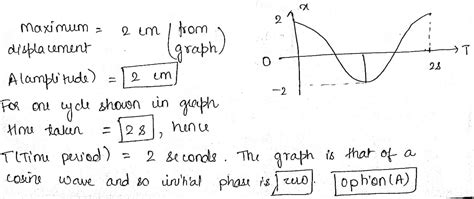 Maximum = 2 cm (from
displacement graph)
A(amplitude) = 2 cm
For one cycle shown in graph
time taken = 2s, hence
T(Time period) = 2 seconds. The graph is that of a
cosine wave and so initial phase is zero. option(A)
x
2
0
-2
2s
T